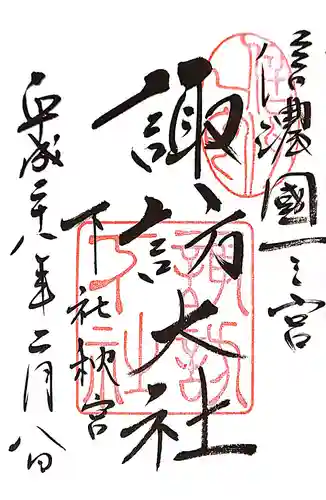 信濃國一之宮
諏訪大社
下社秋宮
平成二十八年二月八日